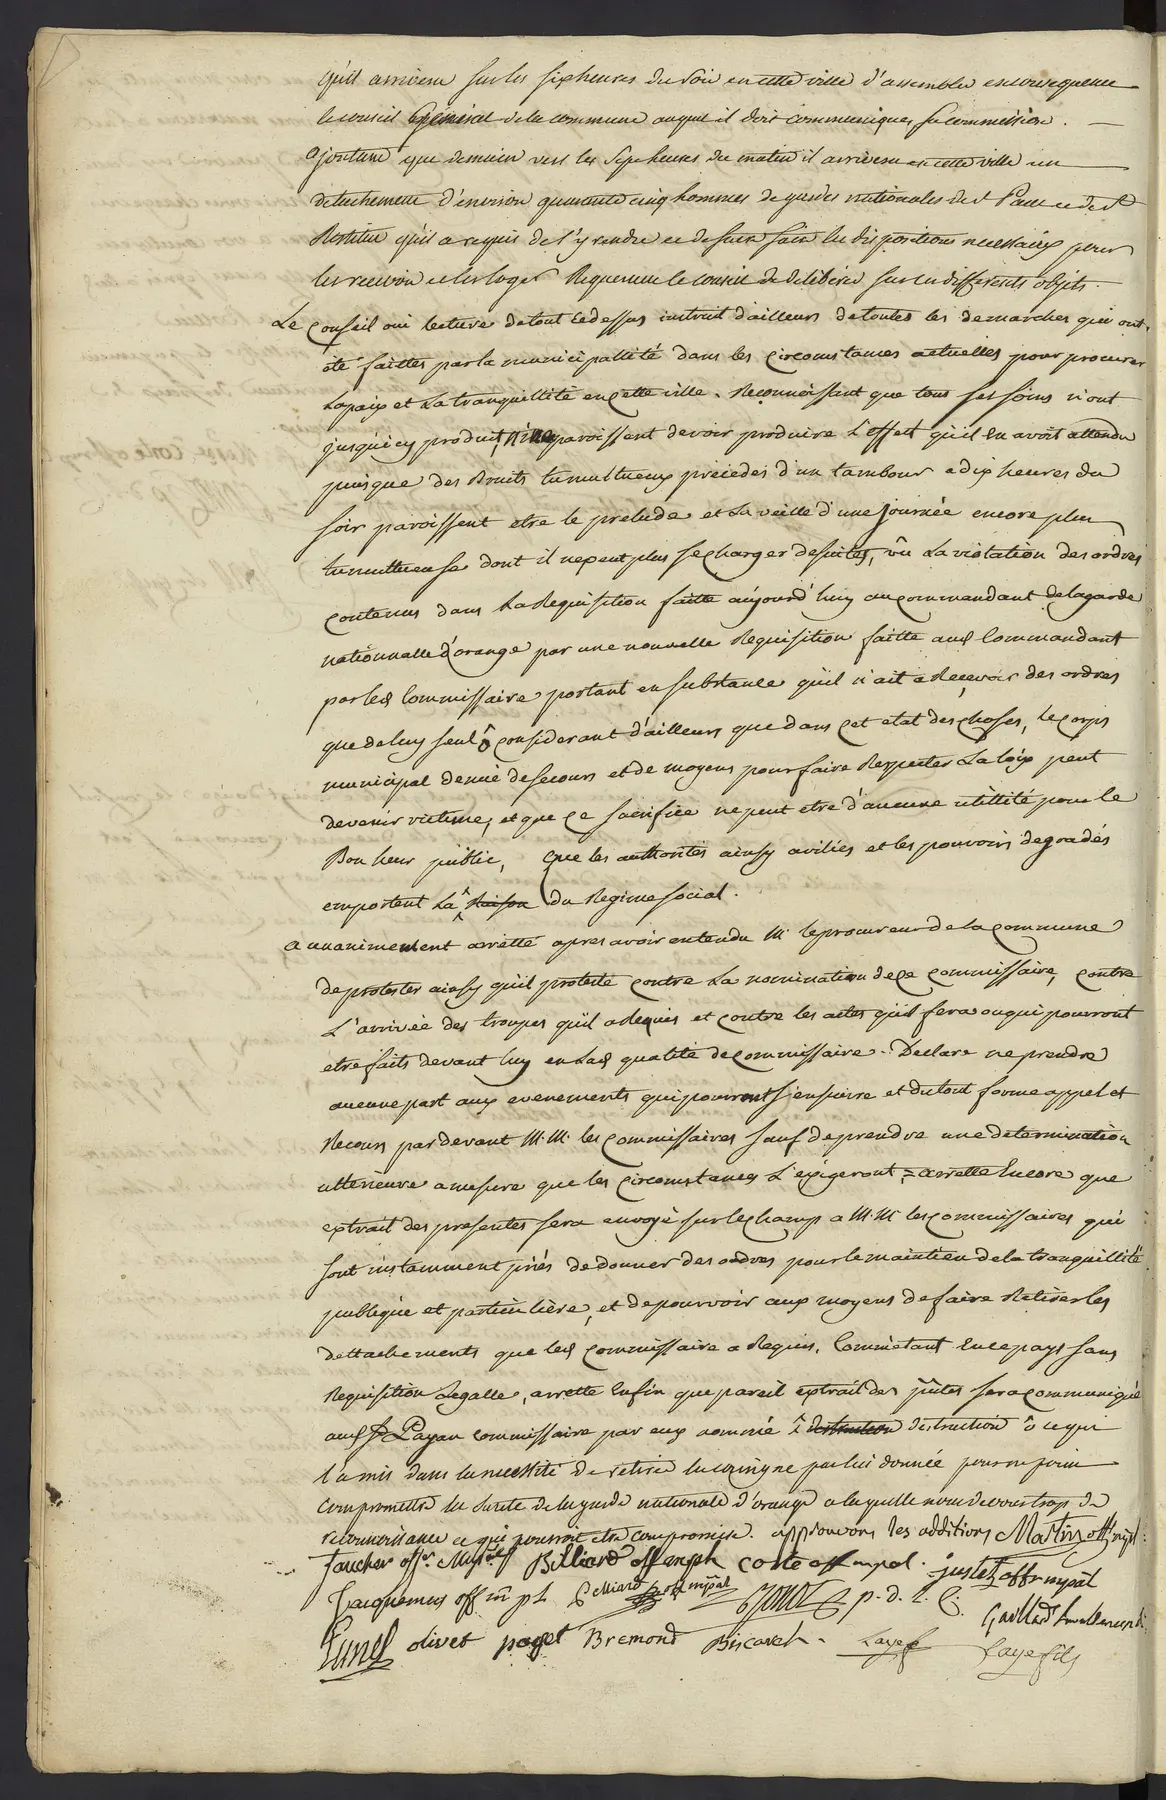 qu'il arrivera sur les six heures du soir en cette ville d'assembler en consequence
le conseil general de la commune auquel il doit communiquer sa commission.
ajoutant que demain vers les sept heures du matin il arrivera en cette ville un
detachement d'environ quarante cinq hommes de gardes nationales de St Paul et de St
Restitut qu'il a requis de s'y rendre et de faire les dispositions necessaires pour
les recevoir et les loger Requerant le conseil de deliberer sur ces differents objets.
Le Conseil oui lecture de tout Cedessus instruit d'ailleurs de toutes les demarches qui ont
été faittes par la municipallité dans les Circonstances actuelles pour procurer
la paix et La tranquillité en Cette ville. Reconnoissant que tous ses soins n'ont
jusqu'icy produit, n'y ne paroissent devoir produire L'effect qu'il En avoit attendu
puisque des Bruits tumultueux précédes d'un tambour a dix heures du
soir paroissent etre le prelude et La veille d'une journée encore plus
tumultueuse dont il ne peut plus se charger des suites, vû La violation des ordres
Contenus dans La Requisition faitte aujourd'huy au Commandant de la garde
nationnalle d'orange par une nouvelle Requisition faitte aud Commandant
par led Commissaire portant en substance qu'il n'ait a Recevoir des ordres
que de luy seul Considerant d'ailleurs que dans Cet etat des Choses, le Corps
municipal denué de secours et de moyens pour faire Respecter La loix peut
devenir victime, et que Ce sacrifice ne peut etre d'aucune utillité pour le
Bonheur public, Que les authorités ainsy avilies et les pouvoirs degradés
emportent La Raison du Regime social.
a unanimement arretté apres avoir entendu Mr le procureur de la Commune
de protester ainsy qu'il proteste Contre La nomination de Ce Commissaire, Contre
L'arrivée des troupes qu'il a Requis et Contre les actes qu'il fera ou qui pourront
etre faits devant luy en Lad qualité de Commissaire. Declare ne prendre
aucune part aux evenements qui pourront s'ensuivre et du tout forme appel et
Recours par devant M.M. les Commissaires sauf de prendre une determination
ulterieure a mesure que les Circonstances L'exigeront = arrette Encore que
extrait des presentes sera envoyé sur le Champ a M.M. les Commissaires qui
sont instamment priés de donner des ordres pour le maintien de la tranquillité
publique et particulière, et de pourvoir aux moyens de faire Retirer les
dettachements que led Commissaire a Requis. Commetant En ce pays sans
Requisition Legalle, arrette Enfin que pareil extrait des presentes sera Communiqué
aud Sr Payan Commissaire par eux nommé destruction destruction a ce qui
l'a mis dans la necessité de retirer la consigne par lui donnée pour ne point
compromettre la sureté de la garde nationale d'orange a laquelle nous devons trop de
reconnoissance et qui pourroit etre compromise. approuvons les additions Martin off. mpl.
Faucher off. Mupal Billiard off mpl Coste off mpal. Justet off mpal
Jacquemus off m pl Belliard off mpal p. d. l. C. Gaillard
Lunel olivet paget Bremond Biscarel. Laye Laye fils